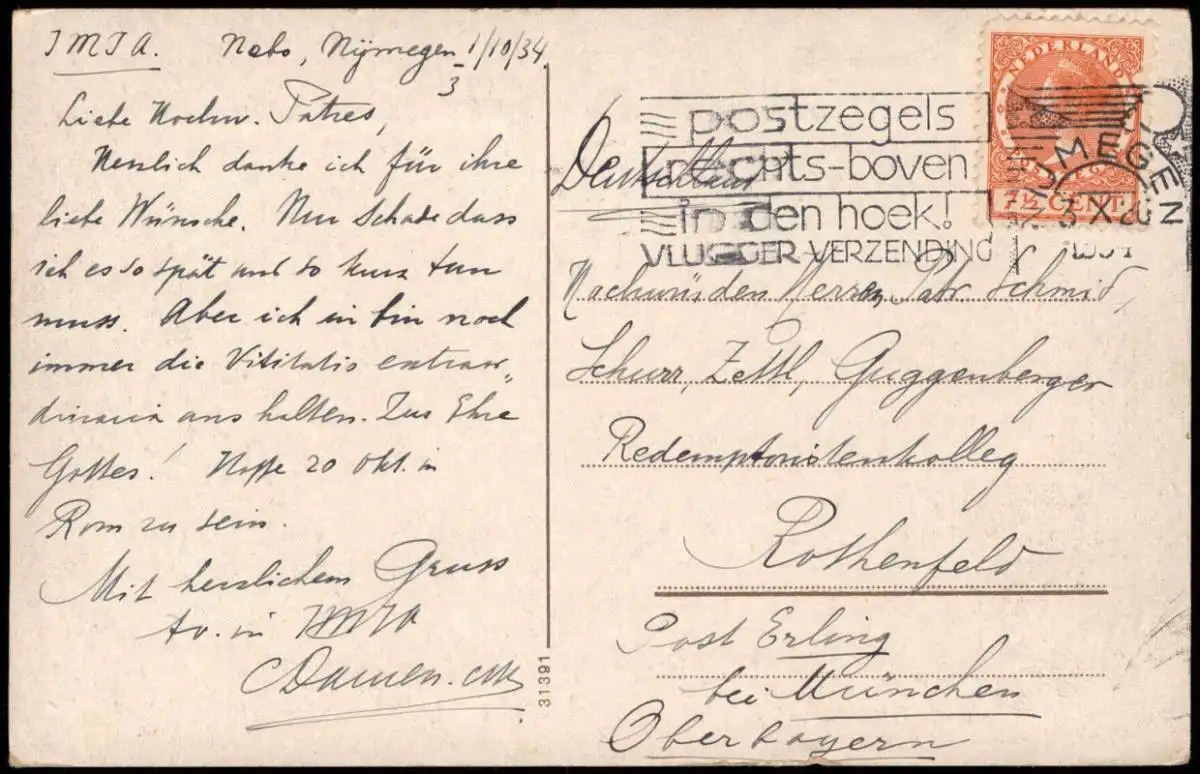 JMJA. Nebo, Nÿmegen 1/10/34
3
Liebe Hochw. Patres,
Herzlich danke ich für ihre
liebe Wünsche. Nur Schade dass
ich es so spät und so kurz tun
muss. Aber ich in bin noch
immer die Visitatio extraor„
dinaria ans halten. Zur Ehre
Gottes! Hoffe 20 Okt. in
Rom zu sein.
Mit herzlichem Gruss
tv. in JMJA
C Damen.
31391
NEDERLAND
7½ CENT
postzegels
rechts-boven
in den hoek!
VLUGGER VERZENDING
NIJMEGEN
3 X 20
1934
Deutschland
Hochwürden Herren Patr Schmid,
Schurr, Zettl, Guggenberger
Redemptoristenkolleg
Rothenfeld
Post Erling
bei München
Oberbayern